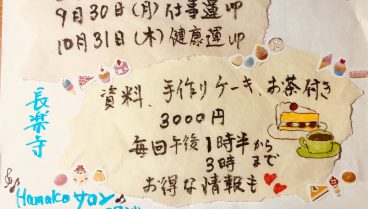 9月30日(月)仕事運up
10月31日(木)健康運up
資料、手作りケーキ、お茶付き
3000円
毎回午後1時半から
3時まで
お得な情報も
長楽寺
Hanakoサロン